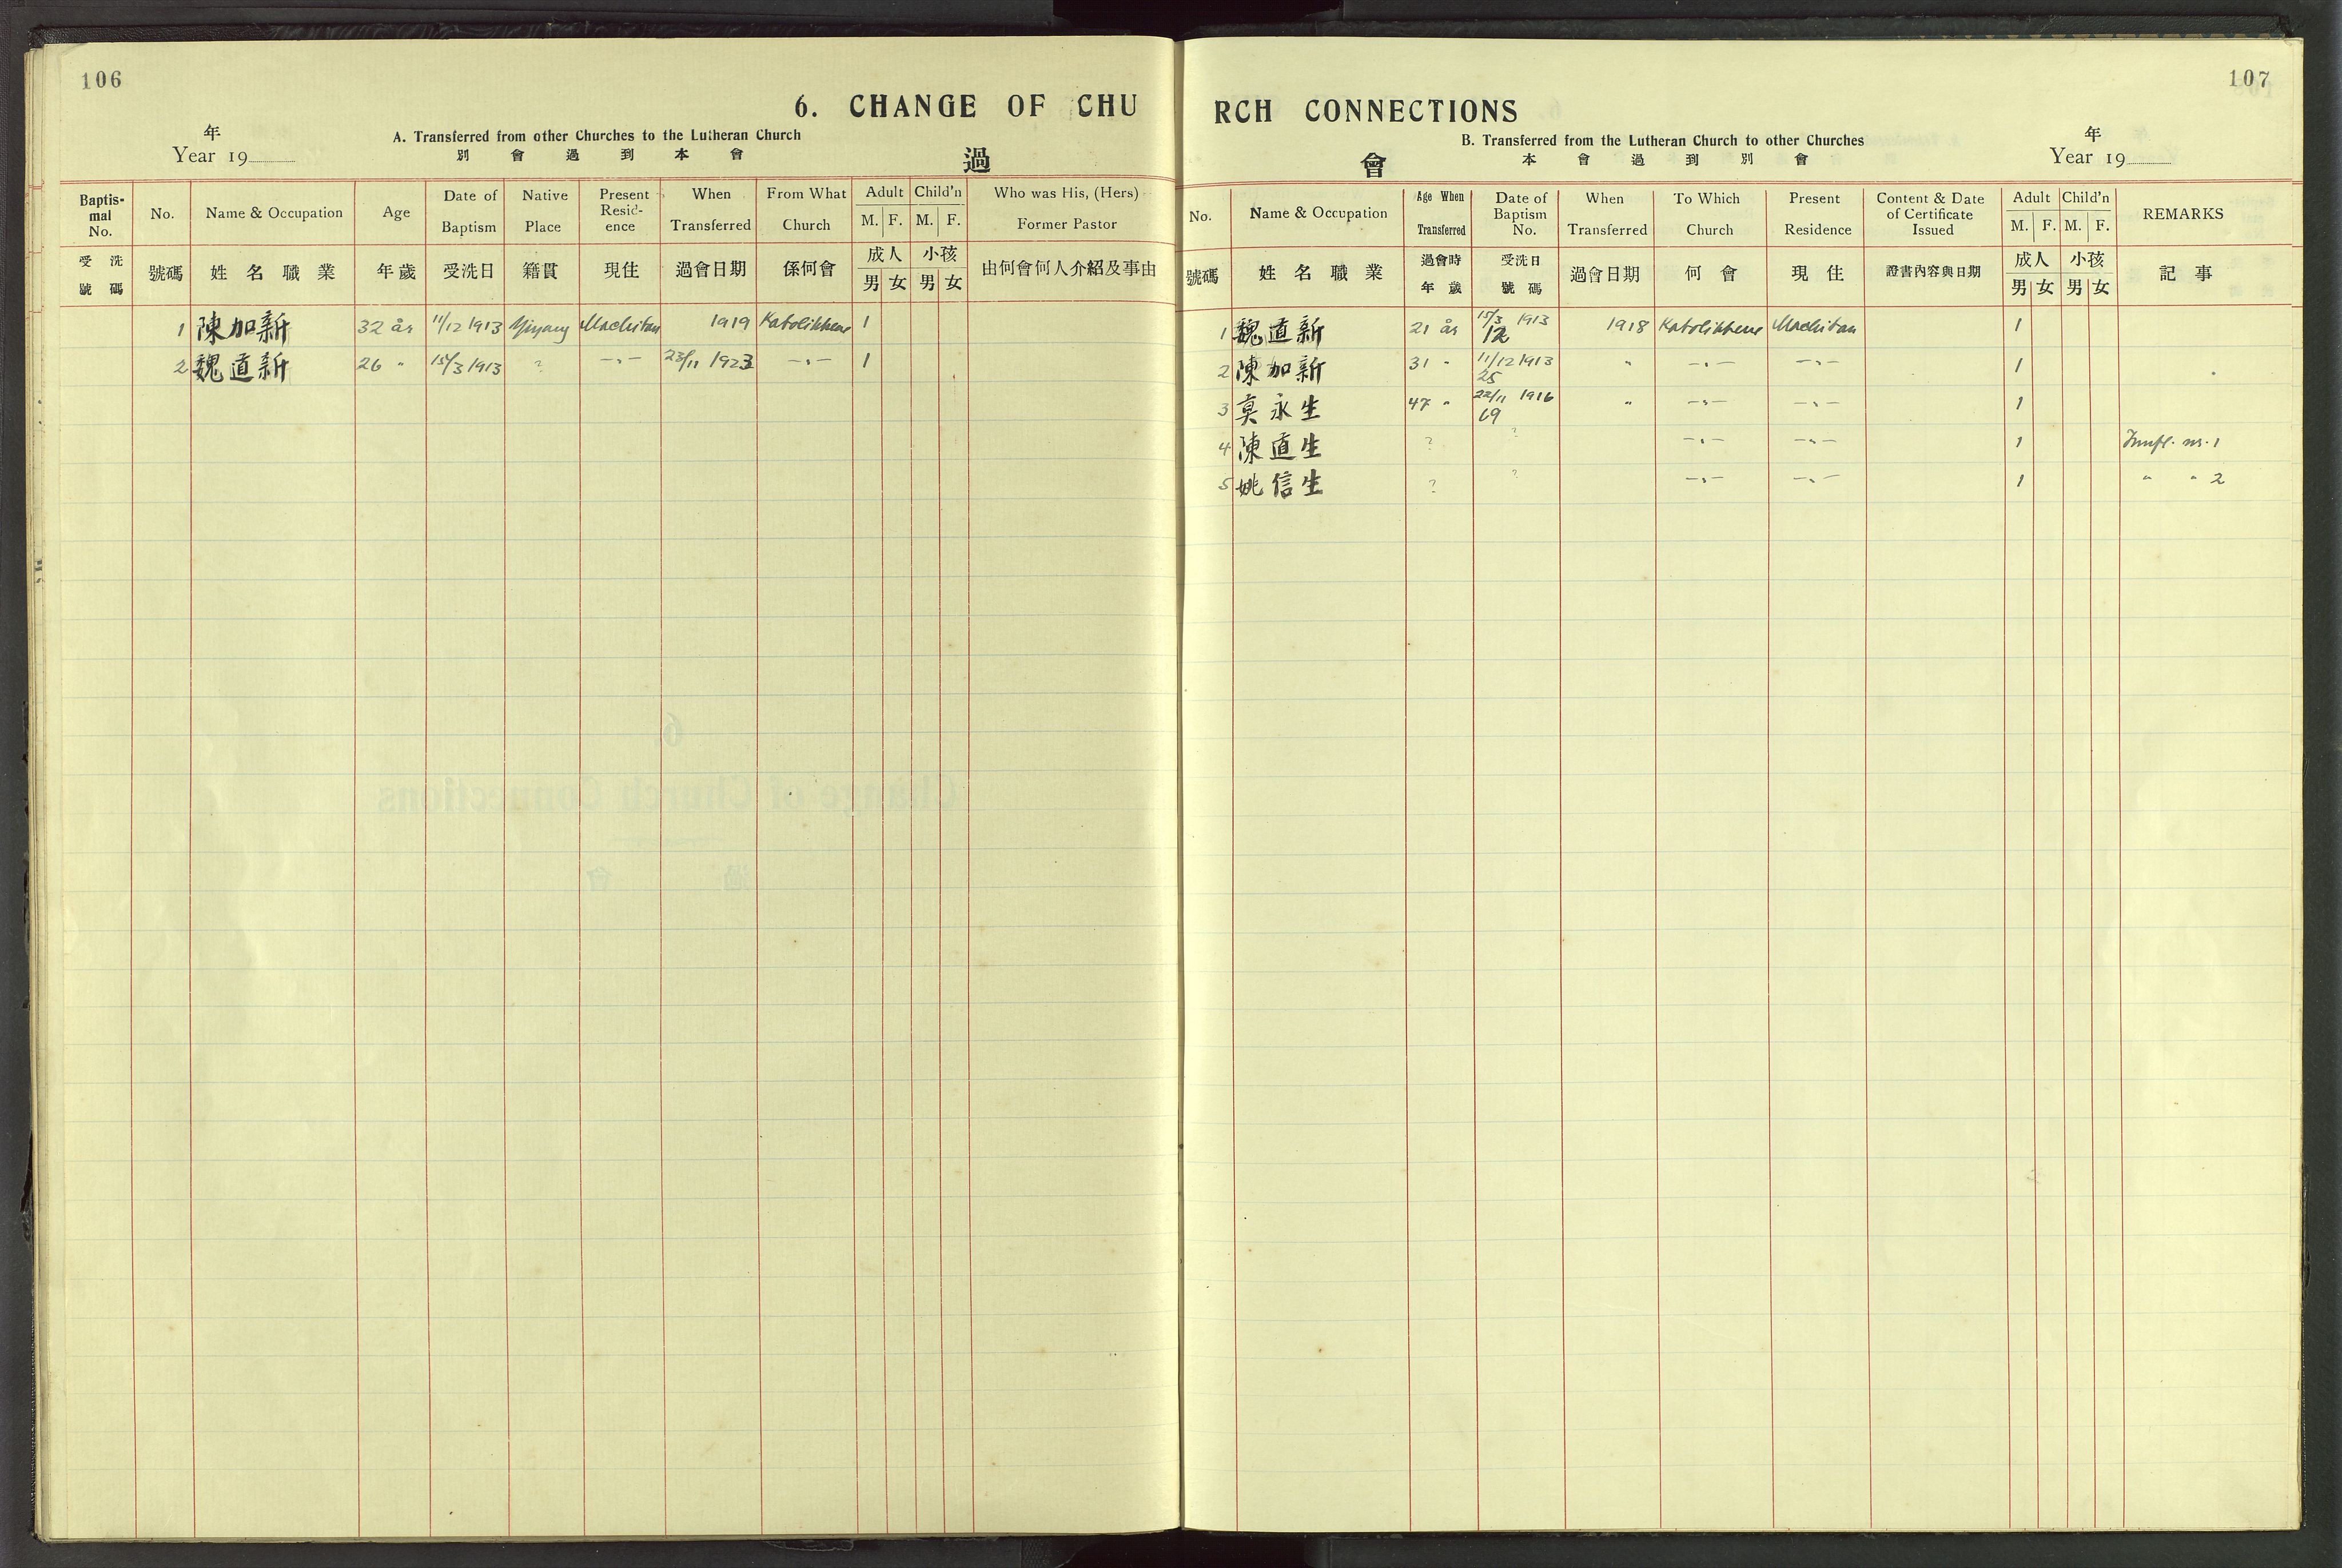 106
6. CHANGE OF CHU
年
Year 19
A. Transferred from other Churches to the Lutheran Church
別會過到本會
過
Baptismal No. No. Name & Occupation Age Date of Baptism Native Place Present Residence When Transferred From What Church Adult M. F. Child'n M. F. Who was His, (Hers) Former Pastor
受洗號碼 號碼 姓名職業 年歲 受洗日 籍貫 現住 過會日期 係何會 成人 男 女 小孩 男 女 由何會何人介紹及事由
1 陳加新 32 år 11/12 1913 Yiyang Machitan 1919 Katolikkene 1
2 魏道新 26 " 15/3 1913 ? -"- 23/11 1923 -"- 1
107
RCH CONNECTIONS
B. Transferred from the Lutheran Church to other Churches
本會過到別會
年
Year 19
會
No. Name & Occupation Age When Transferred Date of Baptism No. When Transferred To Which Church Present Residence Content & Date of Certificate Issued Adult M. F. Child'n M. F. REMARKS
號碼 姓名職業 過會時年歲 受洗日號碼 過會日期 何會 現住 證書內容與日期 成人 男 女 小孩 男 女 記事
1 魏道新 21 år 15/3 1913 12 1918 Katolikkene Machitan 1
2 陳加新 31 " 11/12 1913 25 " -"- -"- 1
3 莫永生 47 " 22/11 1916 69 " -"- -"- 1
4 陳道生 ? ? -"- -"- 1 Innfl. nr. 1
5 姚信生 ? ? -"- -"- 1 " " 2